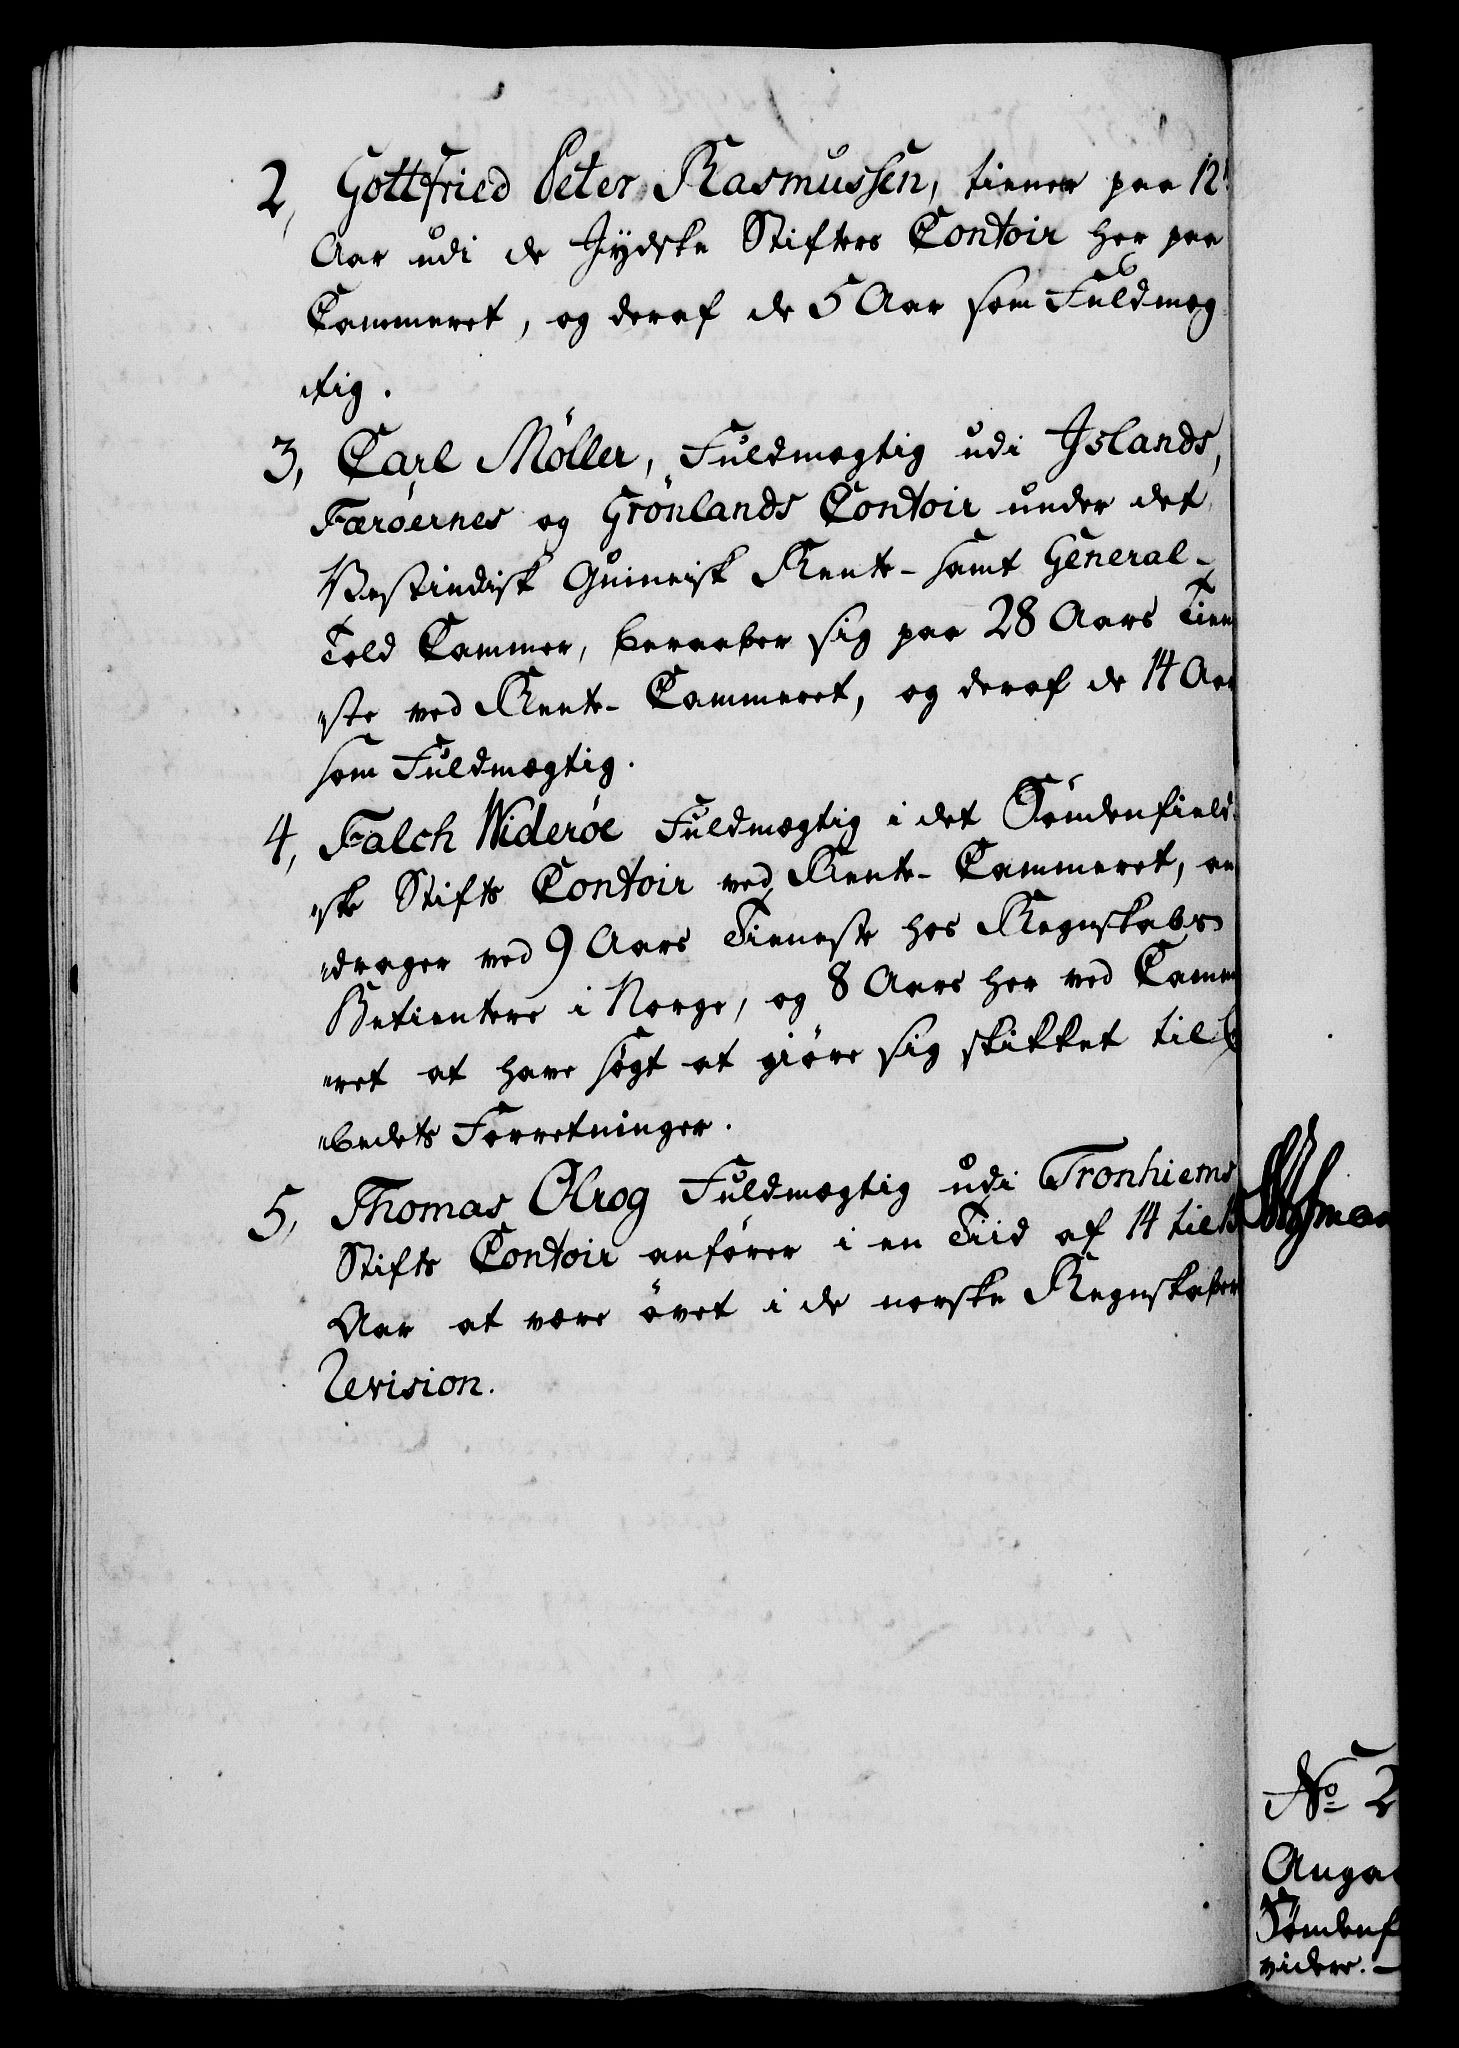 2, Gottfried Peter Rasmussen, tiener paa 12te
Aar udi de Jydske Stifters Contoir her paa
Cammeret, og deraf de 5 Aar som Fuldmæg
tig.
3, Carl Møller, Fuldmægtig udi Islands,
Færøernes og Grönlands Contoir under det
Vestindisk Guineisk Rente- samt General-
Told Cammer, beraaber sig paa 28 Aars Tiene
"ste ved Rente- Cammeret, og deraf de 14 Aar
som Fuldmægtig.
4, Falch Widerøe Fuldmægtig i det Söndenfield
"ske Stifts Contoir ved Rente- Cammeret, an
"drager ved 9 Aars Tieneste hos Regnskabs
Betientere i Norge, og 8 Aars her ved Camme
"ret at have søgt at giöre sig skikket til
"bedets Forretninger.
5, Thomas Olrog Fuldmægtig udi Tronhiems
Stifts Contoir anfører i en Tiid af 14 til
Aar at være övet i de norske Regnskabers
Revision.
No 2
Angaa
Söndenf
videre. -